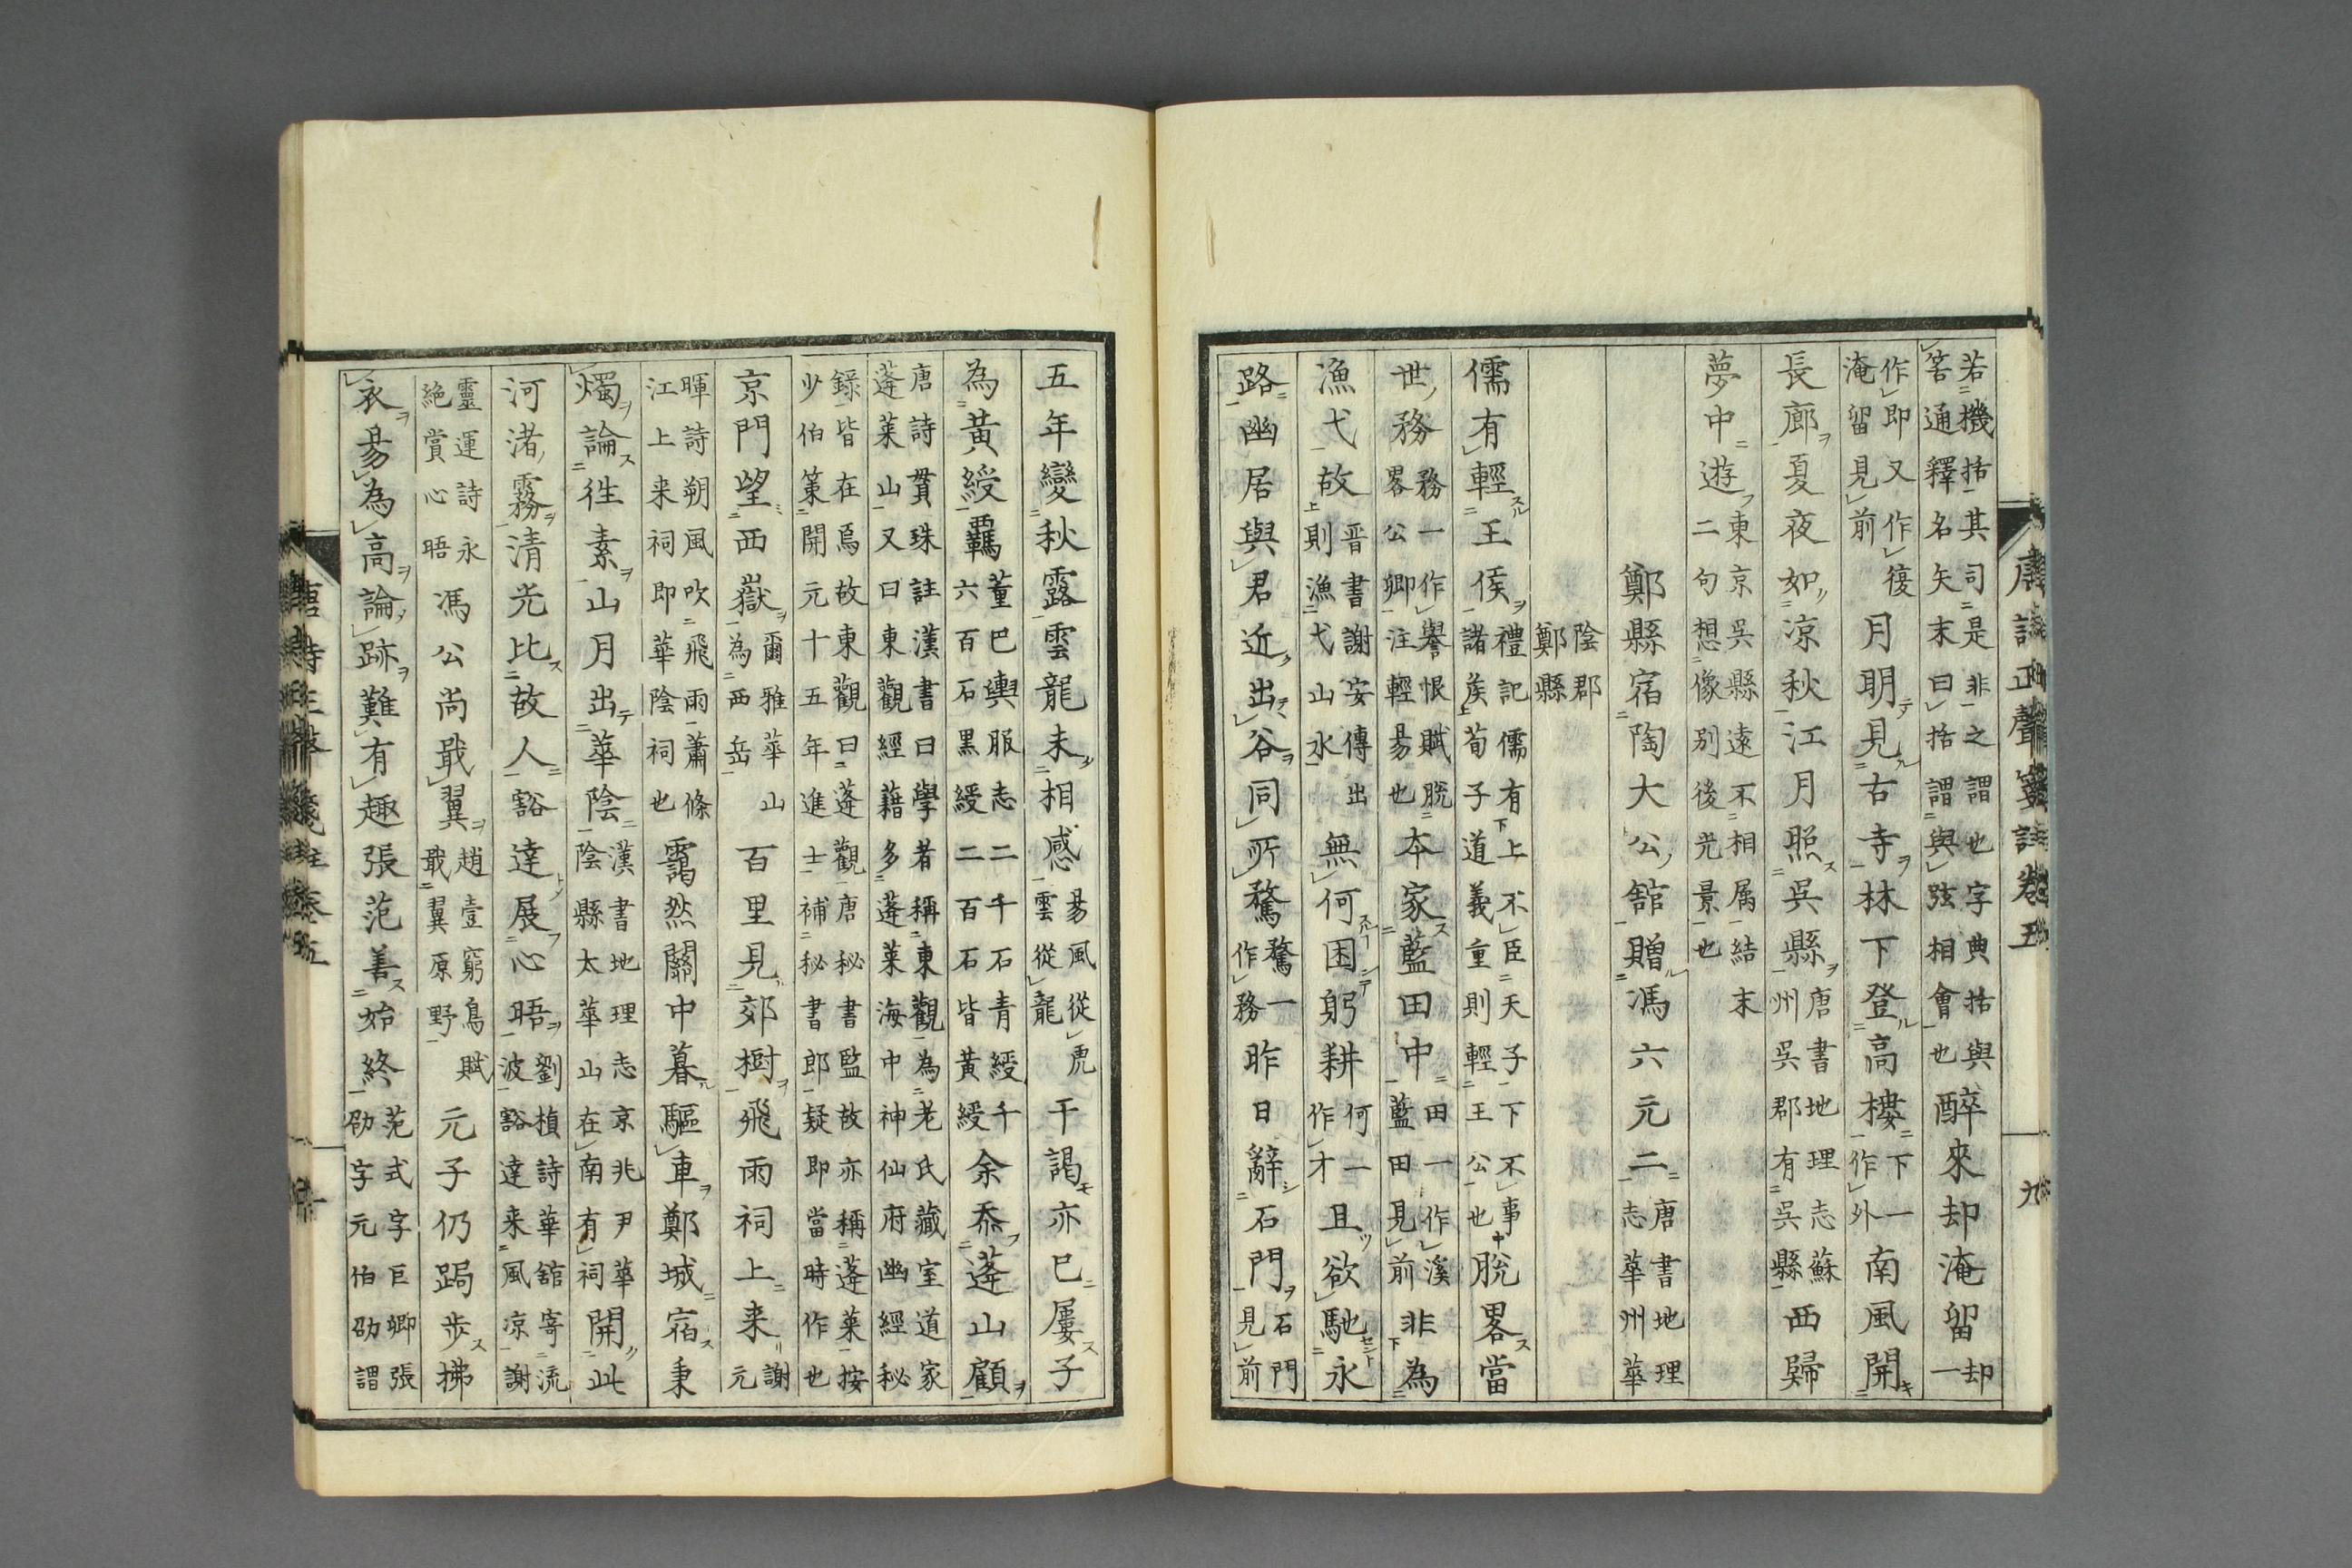 唐詩正聲箋註卷五 九
若機括其司是非之謂也字典括與
筈通釋名矢末曰括謂與弦相會也
醉來却淹留
却一
作即又作復
淹留見前
月明見古寺林下登高樓
下一
作外
南風開
長廊夏夜如凉秋江月照吳縣
唐書地理志蘇
州吳郡有吳縣
西歸
夢中遊
東京吳縣遠不相属結末
二句想像別後光景也
鄭縣宿陶大公館贈馮六元二
唐書地理
志華州華
陰郡
鄭縣
儒有輕王侯
禮記儒有上不臣天子下不事
諸矦荀子道義重則輕王公也
脫畧當
世務
務一作譽恨賦脫
畧公卿注輕易也
本家藍田中
田一作溪
藍田見前
非為
漁弋故
晋書謝安傳出
則漁弋山水
無何困躬耕
何一
作才
且欲馳永
路幽居與君近出谷同所騖
騖一
作務
昨日辭石門
石門
見前
五年變秋露雲龍未相感
易風從虎
雲從龍
干謁亦已屢子
為黃綬羈
董巴輿服志二千石青綬千
六百石黑綬二百石皆黃綬
余忝蓬山顧
唐詩貫珠註漢書曰學者稱東觀為老氏藏室道家
蓬萊山又曰東觀經籍多蓬萊海中神仙府幽經秘
錄皆在焉故東觀曰蓬觀唐秘書監故亦稱蓬萊按
少伯策開元十五年進士補秘書郎疑即當時作也
京門望西嶽
爾雅華山
為西岳
百里見郊樹飛雨祠上来
謝
元
暉詩朔風吹飛雨蕭條
江上来祠即華陰祠也
靄然關中暮驅車鄭城宿秉
燭論徃素山月出華陰
漢書地理志京兆尹華
陰縣太華山在南有祠
開此
河渚霧清光比故人豁達展心晤
劉楨詩華館寄流
波豁達来風凉謝
靈運詩永
絶賞心晤
馮公尚戢翼
趙壹窮鳥賦
戢翼原野
元子仍跼步拂
衣易為高論跡難有趣張范善始終
范式字巨卿張
劭字元伯劭謂